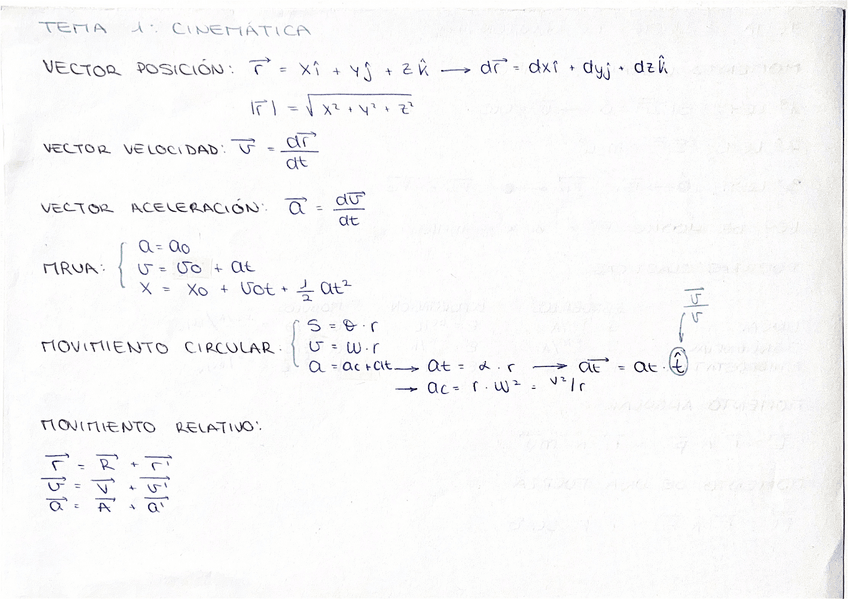 TEMA 1: CINEMÁTICA
VECTOR POSICIÓN: r⃗ = xî + yĵ + zk̂ → dr⃗ = dxî + dyĵ + dzk̂
|r⃗| = √(x² + y² + z²)
VECTOR VELOCIDAD: v⃗ = dr⃗/dt
VECTOR ACELERACIÓN: a⃗ = dv⃗/dt
MRUA: { a = a₀
v = v₀ + at
x = x₀ + v₀t + ½ at²
v⃗/v
MOVIMIENTO CIRCULAR: { S = θ · r
v = ω · r
a = ac + at → at = α · r → at⃗ = at · t̂
→ ac = r · ω² = v²/r
MOVIMIENTO RELATIVO:
r⃗ = R⃗ + r⃗'
v⃗ = V⃗ + v⃗'
a⃗ = A⃗ + a⃗'